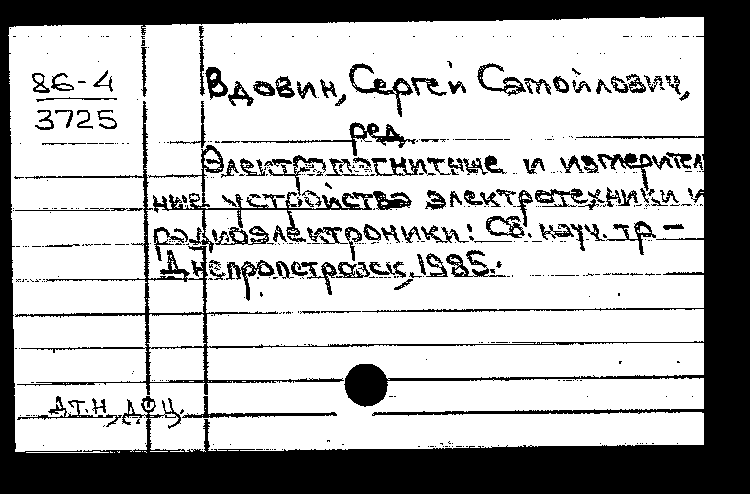 86-4
3725
Вдовин, Сергей Самойлович,
ред.
Электромагнитные и измеритель
ные устройства электротехники и
радиоэлектроники: Сб. науч. тр -
Днепропетровск, 1985.
д.т.н., доц.